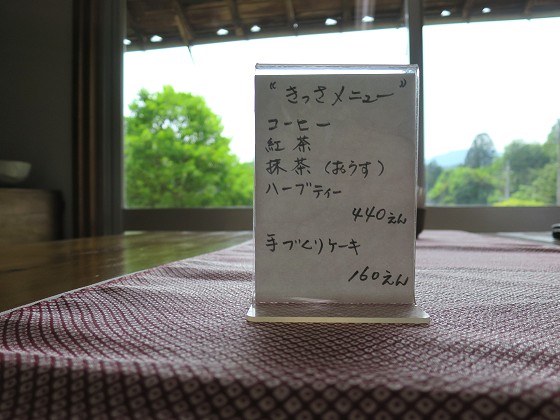 "きっさメニュー"
コーヒー
紅茶
抹茶(おうす)
ハーブティー
440えん
手づくりケーキ
160えん